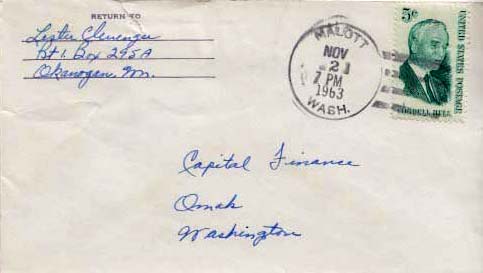 RETURN TO
Lester Clevenger
Rt 1. Box 295A
Okanogen, Wn.
MALOTT
NOV
2
7 PM
1963
WASH.
5¢
UNITED STATES POSTAGE
CORDELL HULL
Capital Finance
Omak
Washington